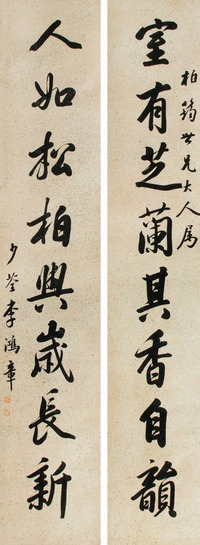 柏鏞世兄大人屬
室有芝蘭其香自韻
人如松柏與歲長新
少荃李鴻章